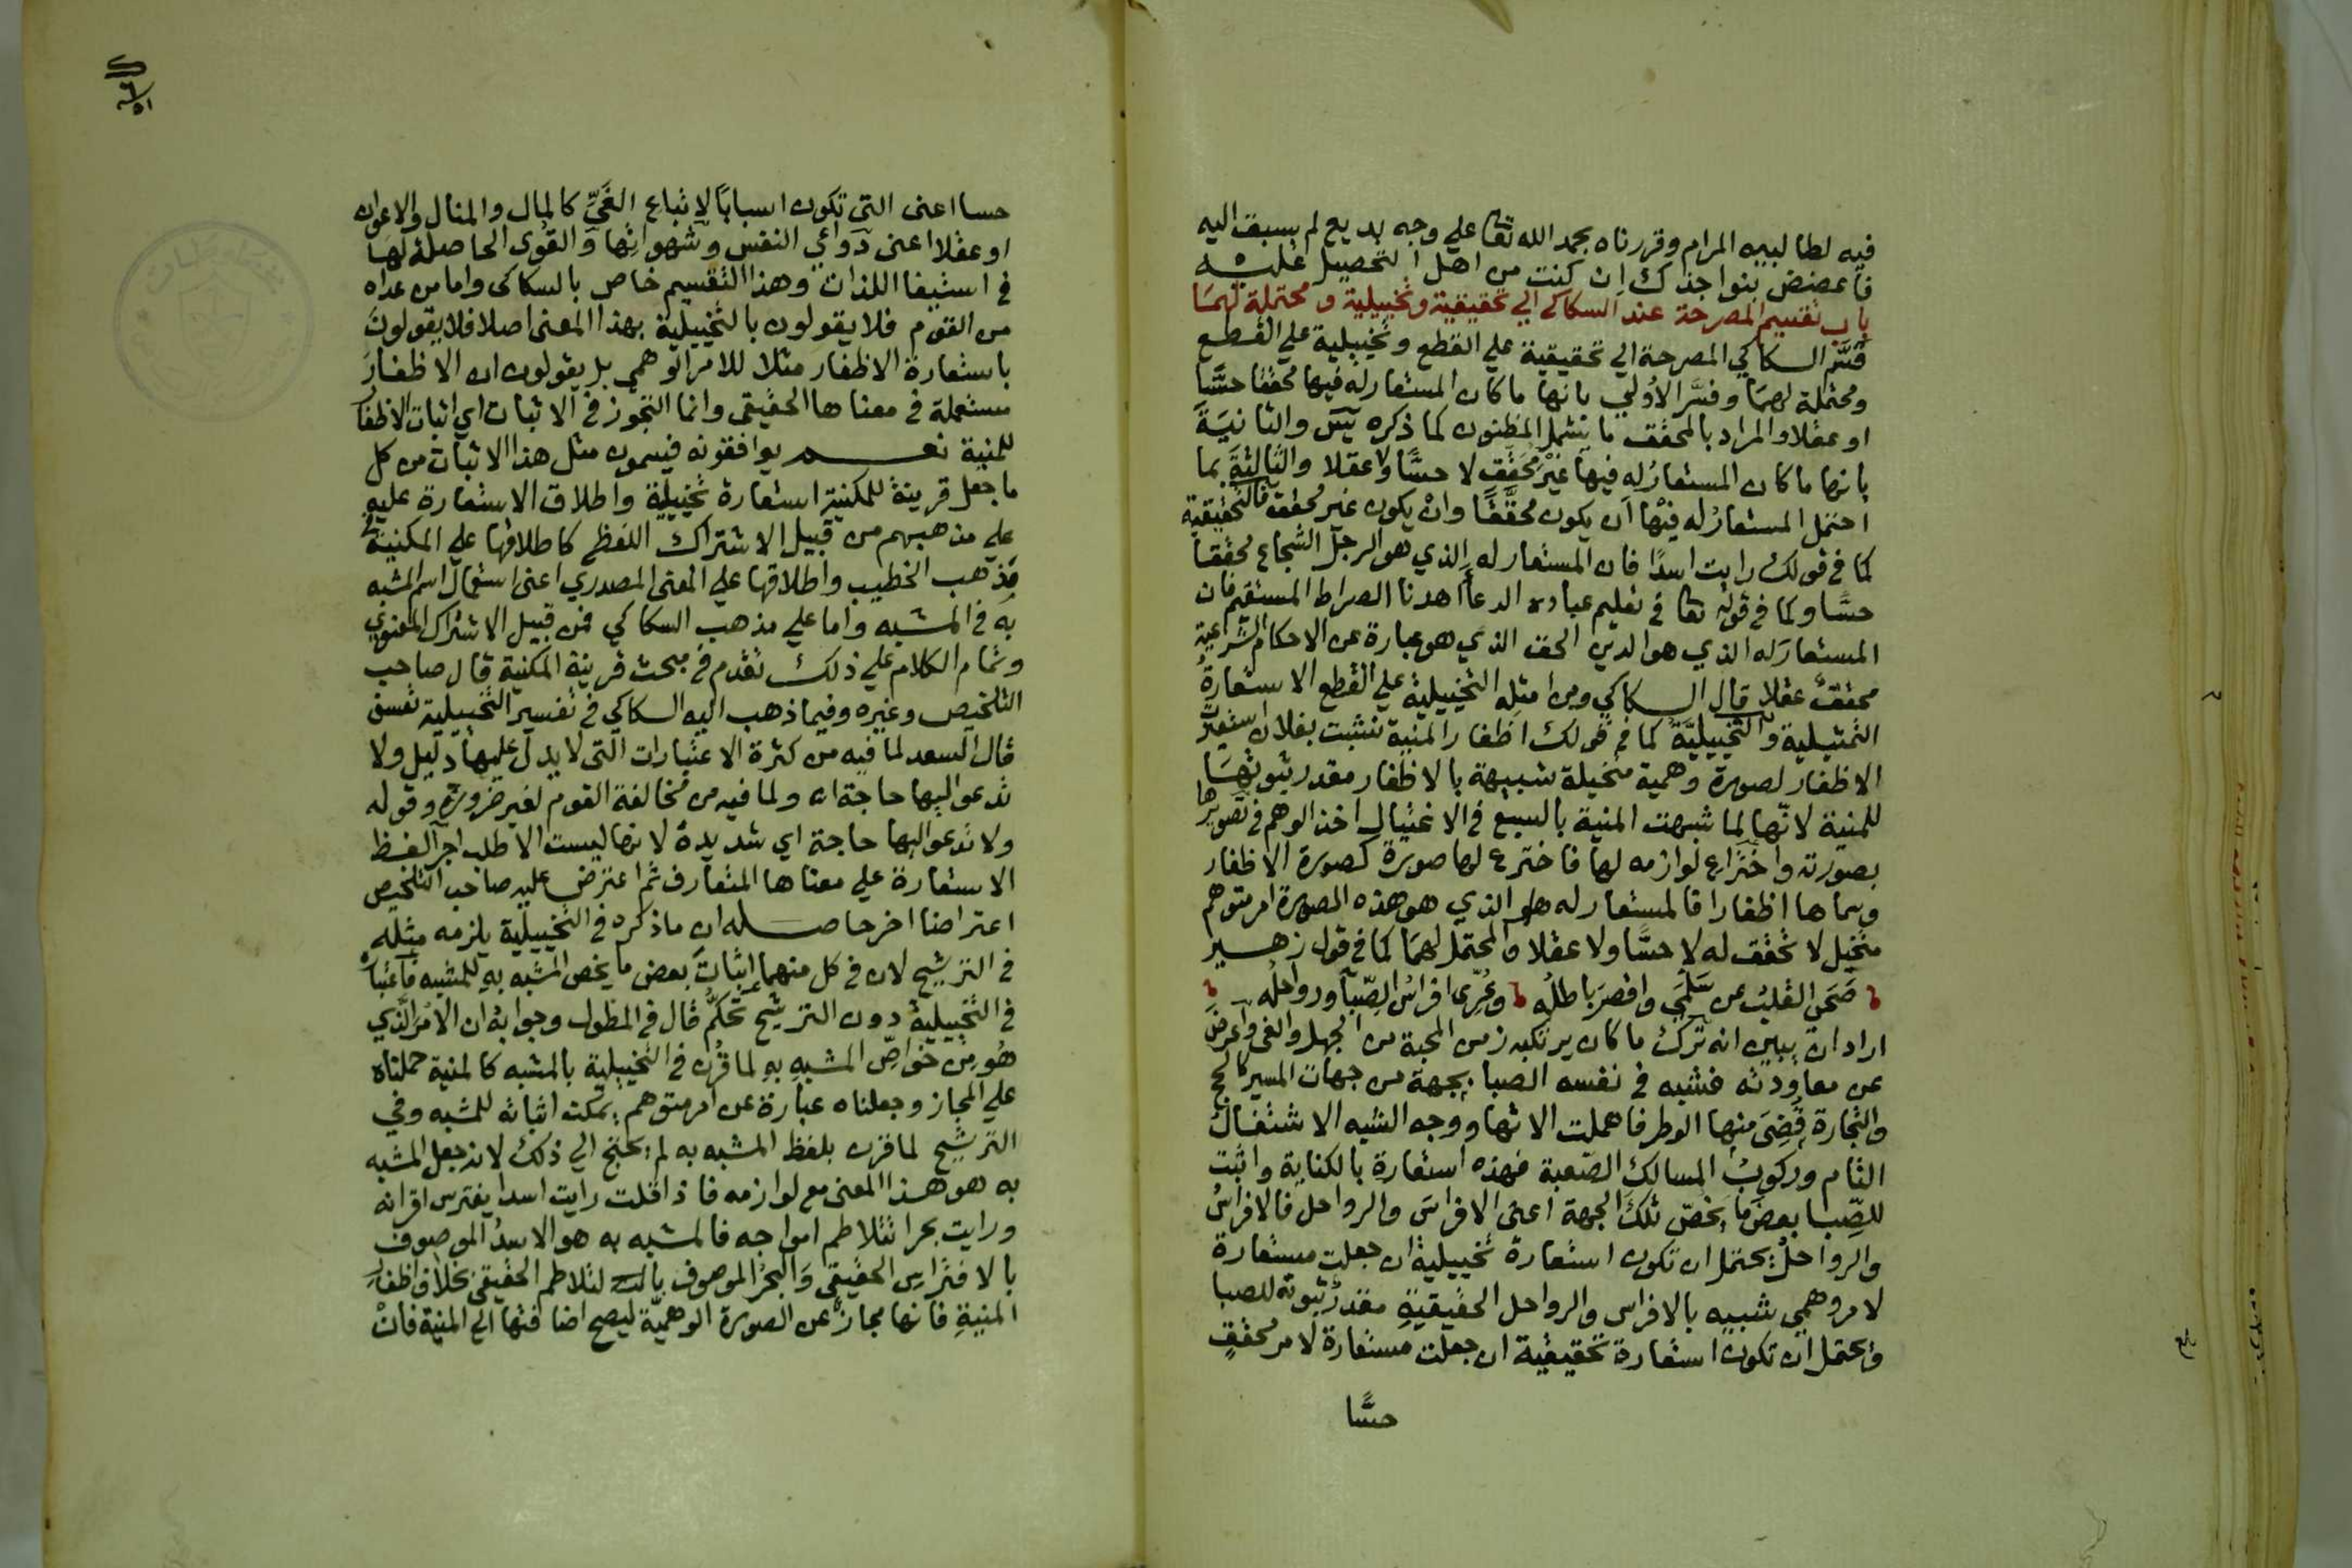 فيه لطالبيه المرام وقررناه بحمد الله تعا علي وجه بديع لم يسبق اليه
فاعضض بنواجذك ان كنت من اهل التحصيل عليه
باب تقسيم المصرحة عند السكاكي الي تحقيقية وتخييلية ومحتملة لهما
قسَّم السكاكي المصرحة الي تحقيقية علي القطع وتخييلية علي القطع
ومحتملة لهما وفسَّر الاولي بانها ما كان المستعار له فيها محققا حسَّا
او عقلا والمراد بالمحقق ما يشمل المظنون كما ذكره يٓس والثانيَةَ
بانها ما كان المستعارُ له فيها غيْرَ مُحَقَّق لا حسًّا ولا عقلا والثالثةَ بما
احتمل المستعارُ له فيْها ان يكون محقَّقًا وانْ يكون غير محقق فالتحقيقية
كما في قولك رايت اسدًا فان المستعار له الذي هو الرجل الشجاع محققا
حسًّا وكما في قوله تعا في تعليم عباده الدعا اهدنا الصراط المستقيم فان
المستعارَ له الذي هو الدين الحق الذي هو عبارة عن الاحكام الشرعية
محققٌ عقلا قال السكاكي ومن امثله التخييلية علي القطع الاستعارةُ
التمثيلية والتخييليَّةُ كما في قولك اظفار المنية نشبت بفلان استعيرت
الاظفار لصورة وهمية متخيلة شبيهة بالاظفار مقدر ثبوتهَا
للمنية لانّها لما شبهت المنية بالسبع في الاغتيال اخذ الوهم في تصويرها
بصورته واخْتراع لوازمه لها فاخترع لها صورة كصورة الاظفار
وسماها اظفارا فالمستعار له هو الذي هو هذه الصورة امر متوهم
متخيل لا تحقق له لا حسَّا ولا عقلا والمحتمل لهما كما في قول زهير
صَحَى القلبُ عن سَلْمَي واقصرَ باطلُه وعُرّى افراسُ الصِّبا ورواحلُه
اراد ان يبين انه تَرَكَ ما كان يرتكبه زمن المحبة من الجهل والغي واعرضَ
عن معاودته فشبه في نفسه الصبا بجهة من جهات المسير كالحج
والتجارة قضِىَ منها الوطر فاهملت الاتها ووجه الشبه الاشتغالُ
التام وركوبُ المسالك الصّعبة فهذه استعارة بالكناية واثبت
للصِّبا بعضَ ما يخصّ تلكَ الجهة اعنى الافراسَ والرواحل فالافراسُ
والرواحلُ يحتمل ان تكون استعارة تخييلية ان جعلت مستعارة
لامر وهمي شبيه بالافراس والرواحل الحقيقيةِ مقدر ثبوته للصبا
ويحتمل ان تكون استعارة تحقيقية ان جعلت مستعارة لامر محققٍ
حسًّا
حسا اعنى التى تكون اسبابًا لاتباع الغَيِّ كالمال والمنال والاعوان
او عقلا اعنى دَواعي النفس وشهواتها والقُوى الحاصلة لها
في استيفا اللذات وهذا التقسيم خاص بالسكاكى واما من عداه
من القوم فلا يقولون بالتخييلية بهذا المعنى اصلا فلا يقولونَ
باستعارة الاظفار مثلا للامر الوهمي بل يقولون ان الاظفارَ
مستعملة في معناها الحقيقى وانما التجوز في الاثبات اي اثبات الاظفار
للمنية نعم يوافقونه فيسمون مثل هذا الاثبات من كل
ما جعل قرينة للمكنية استعارة تخييلية واطلاق الاستعارة عليه
علي مذهبهم من قبيل الاشتراك اللفظي كاطلاقها علي المكنية على
مذهب الخطيب واطلاقها علي المعنى المصدري اعنى استعمال اسم المشبه
به في المشبه واما علي مذهب السكاكي فمن قبيل الاشتراك المعنوي
وتمام الكلام علي ذلك تقدم في مبحث قرينة المكنية قال صاحب
التلخيص وغيره وفيما ذهب اليه السكاكي في تفسير التخييلية تعسف
قال السعد لما فيه من كثرة الاعتبارات التى لا يدل عليها دليل ولا
تدعو اليها حاجة اه ولما فيه من مخالفة القوم لغير ضرورة وقوله
ولا تدعو اليها حاجة اي شديدة لانها ليست الا طلب اجرا لفظ
الاستعارة علي معناها المتعارف ثم اعترض عليه صاحب التلخيص
اعتراضا اخر حاصله ان ما ذكره في التخييلية يلزمه مثله
في الترشيح لان في كل منهما اثباتَ بعض ما يخص المشبه بهِ للمشبه فاعتباره
في التخييلية دون الترشيح تحكّم قال في المطول وجوابه ان الامر الّذي
هُو من خَواصّ المشبه بهِ لما قُرن في التخييلية بالمشبه كالمنية حملناه
علي المجاز وجعلناه عبارة عن امر متوهم يمكن اثباته للمشبه وفي
الترشيح لما قرن بلفظ المشبه به لم يحتج الي ذلك لانه جعل المشبه
به هو هذا المعنى مع لوازمه فاذا قلت رايت اسدا يفترس اقرانه
ورايت بحرا تتلاطم امواجه فالمشبه به هو الاسدُ الموصوف
بالافتراس الحقيقى والبحرُ الموصوف بالتلاطم الحقيقى بخلاف اظفار
المنيةِ فانها مجازٌ عن الصورة الوهميّة ليصح اضافتها الي المنية فانْ